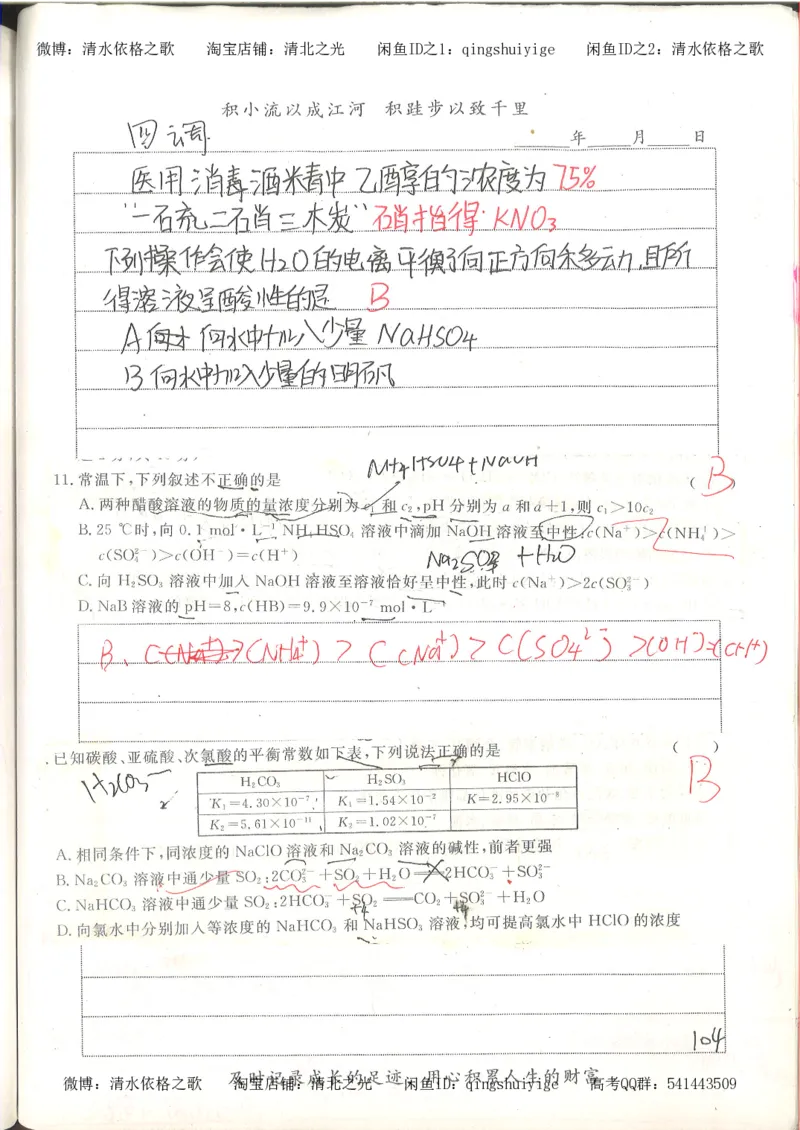 微博：清水依格之歌 淘宝店铺：清北之光 闲鱼ID之1：qingshuiyige 闲鱼ID之2：清水依格之歌
积小流以成江河 积跬步以致千里
四调.
年 月 日
医用消毒酒精中乙醇的浓度为75%
"一硫二硝三木炭"硝指得 KNO₃
下列操作会使H₂O的电离平衡向正方向移动,且所
得溶液呈酸性的是 B
A 向水中加入少量 NaHSO4
B 向水中加入少量的明矾
NH4HSO4+NaOH
11.常温下,下列叙述不正确的是 ( B )
A.两种醋酸溶液的物质的量浓度分别为 c₁ 和 c₂,pH 分别为 a 和 a+1,则 c₁>10c₂
B.25 ℃时,向 0.1 mol·L⁻¹ NH₄HSO₄ 溶液中滴加 NaOH 溶液至中性:c(Na⁺)>c(NH₄⁺)>
c(SO₄²⁻)>c(OH⁻)=c(H⁺)
+H₂O
C.向 H₂SO₃ 溶液中加入 NaOH 溶液至溶液恰好呈中性,此时 c(Na⁺)>2c(SO₃²⁻)
D.NaB溶液的 pH=8,c(HB)=9.9×10⁻⁷ mol·L⁻
B、(NH4⁺) > C(Na⁺) > C(SO4²⁻) >(OH⁻)=(H+)
.已知碳酸、亚硫酸、次氯酸的平衡常数如下表,下列说法正确的是 ( )
H₂CO₃
B
H₂CO₃ H₂SO₃ HClO
K₁=4.30×10⁻⁷ K₁=1.54×10⁻² K=2.95×10⁻⁸
K₂=5.61×10⁻¹¹ K₂=1.02×10⁻⁷
A.相同条件下,同浓度的 NaClO 溶液和 Na₂CO₃ 溶液的碱性,前者更强
B.Na₂CO₃ 溶液中通少量 SO₂:2CO₃²⁻+SO₂+H₂O══2HCO₃⁻+SO₃²⁻
C.NaHCO₃ 溶液中通少量 SO₂:2HCO₃⁻+SO₂══CO₂+SO₃²⁻+H₂O
+4 +4
D.向氯水中分别加入等浓度的 NaHCO₃ 和 NaHSO₃ 溶液,均可提高氯水中 HClO 的浓度
104
及时记录成长的足迹 用心积累人生的财富
微博：清水依格之歌 淘宝店铺：清北之光 闲鱼ID：qingshuiyige 高考QQ群：541443509